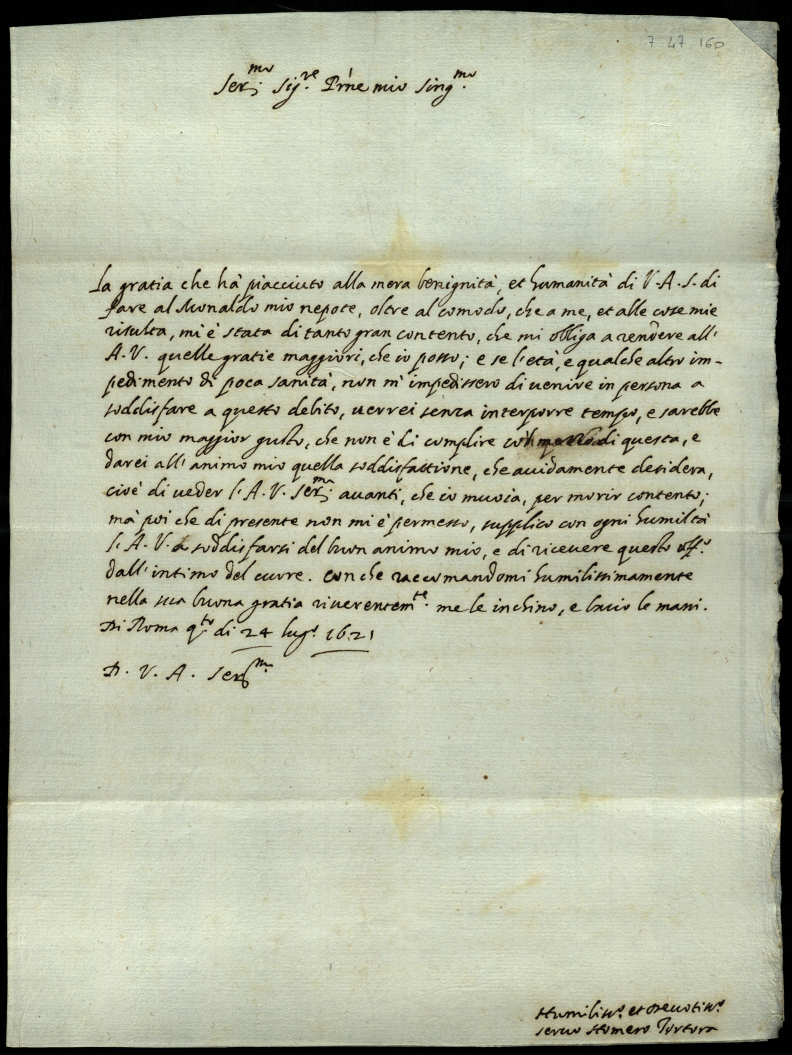 7 47 160
Ser.mo Sig.re P'rne mio Sing.mo
La gratia che hà piacciuto alla mera benignità, et humanità di V. A. S. di
fare al Monaldo mio nepote, oltre al comodo, che a me, et alle cose mie
risulta, mi è stata di tanto gran contento, che mi obliga a rendere all'
A. V. quelle gratie maggiori, che io posso; e se l'età, e qualche altro im-
pedimento di poca sanità, non m'impedissero di uenire in persona a
soddisfare a questo debito, uerrei senza interporre tempo, e sarebbe
con mio maggior gusto, che non è di complire di questa, e
darei all'animo mio quella soddisfattione, che auidamente desidera,
cioè di ueder l'A. V. Ser.ma auanti, che io muoia, per morir contento;
mà poi che di presente non mi è permesso, supplico con ogni humiltà
l'A. V. a soddisfarsi del buon animo mio, e di riceuere questo off.o
dall'intimo del cuore. Con che raccomandomi humilissimamente
nella sua buona gratia riuerentem.te me le inchino, e bacio le mani.
Di Roma q.to di 24 lug.o 1621
D. V. A. Ser.ma
Humiliss.o et Deuotiss.o
seruo Homero Tortora